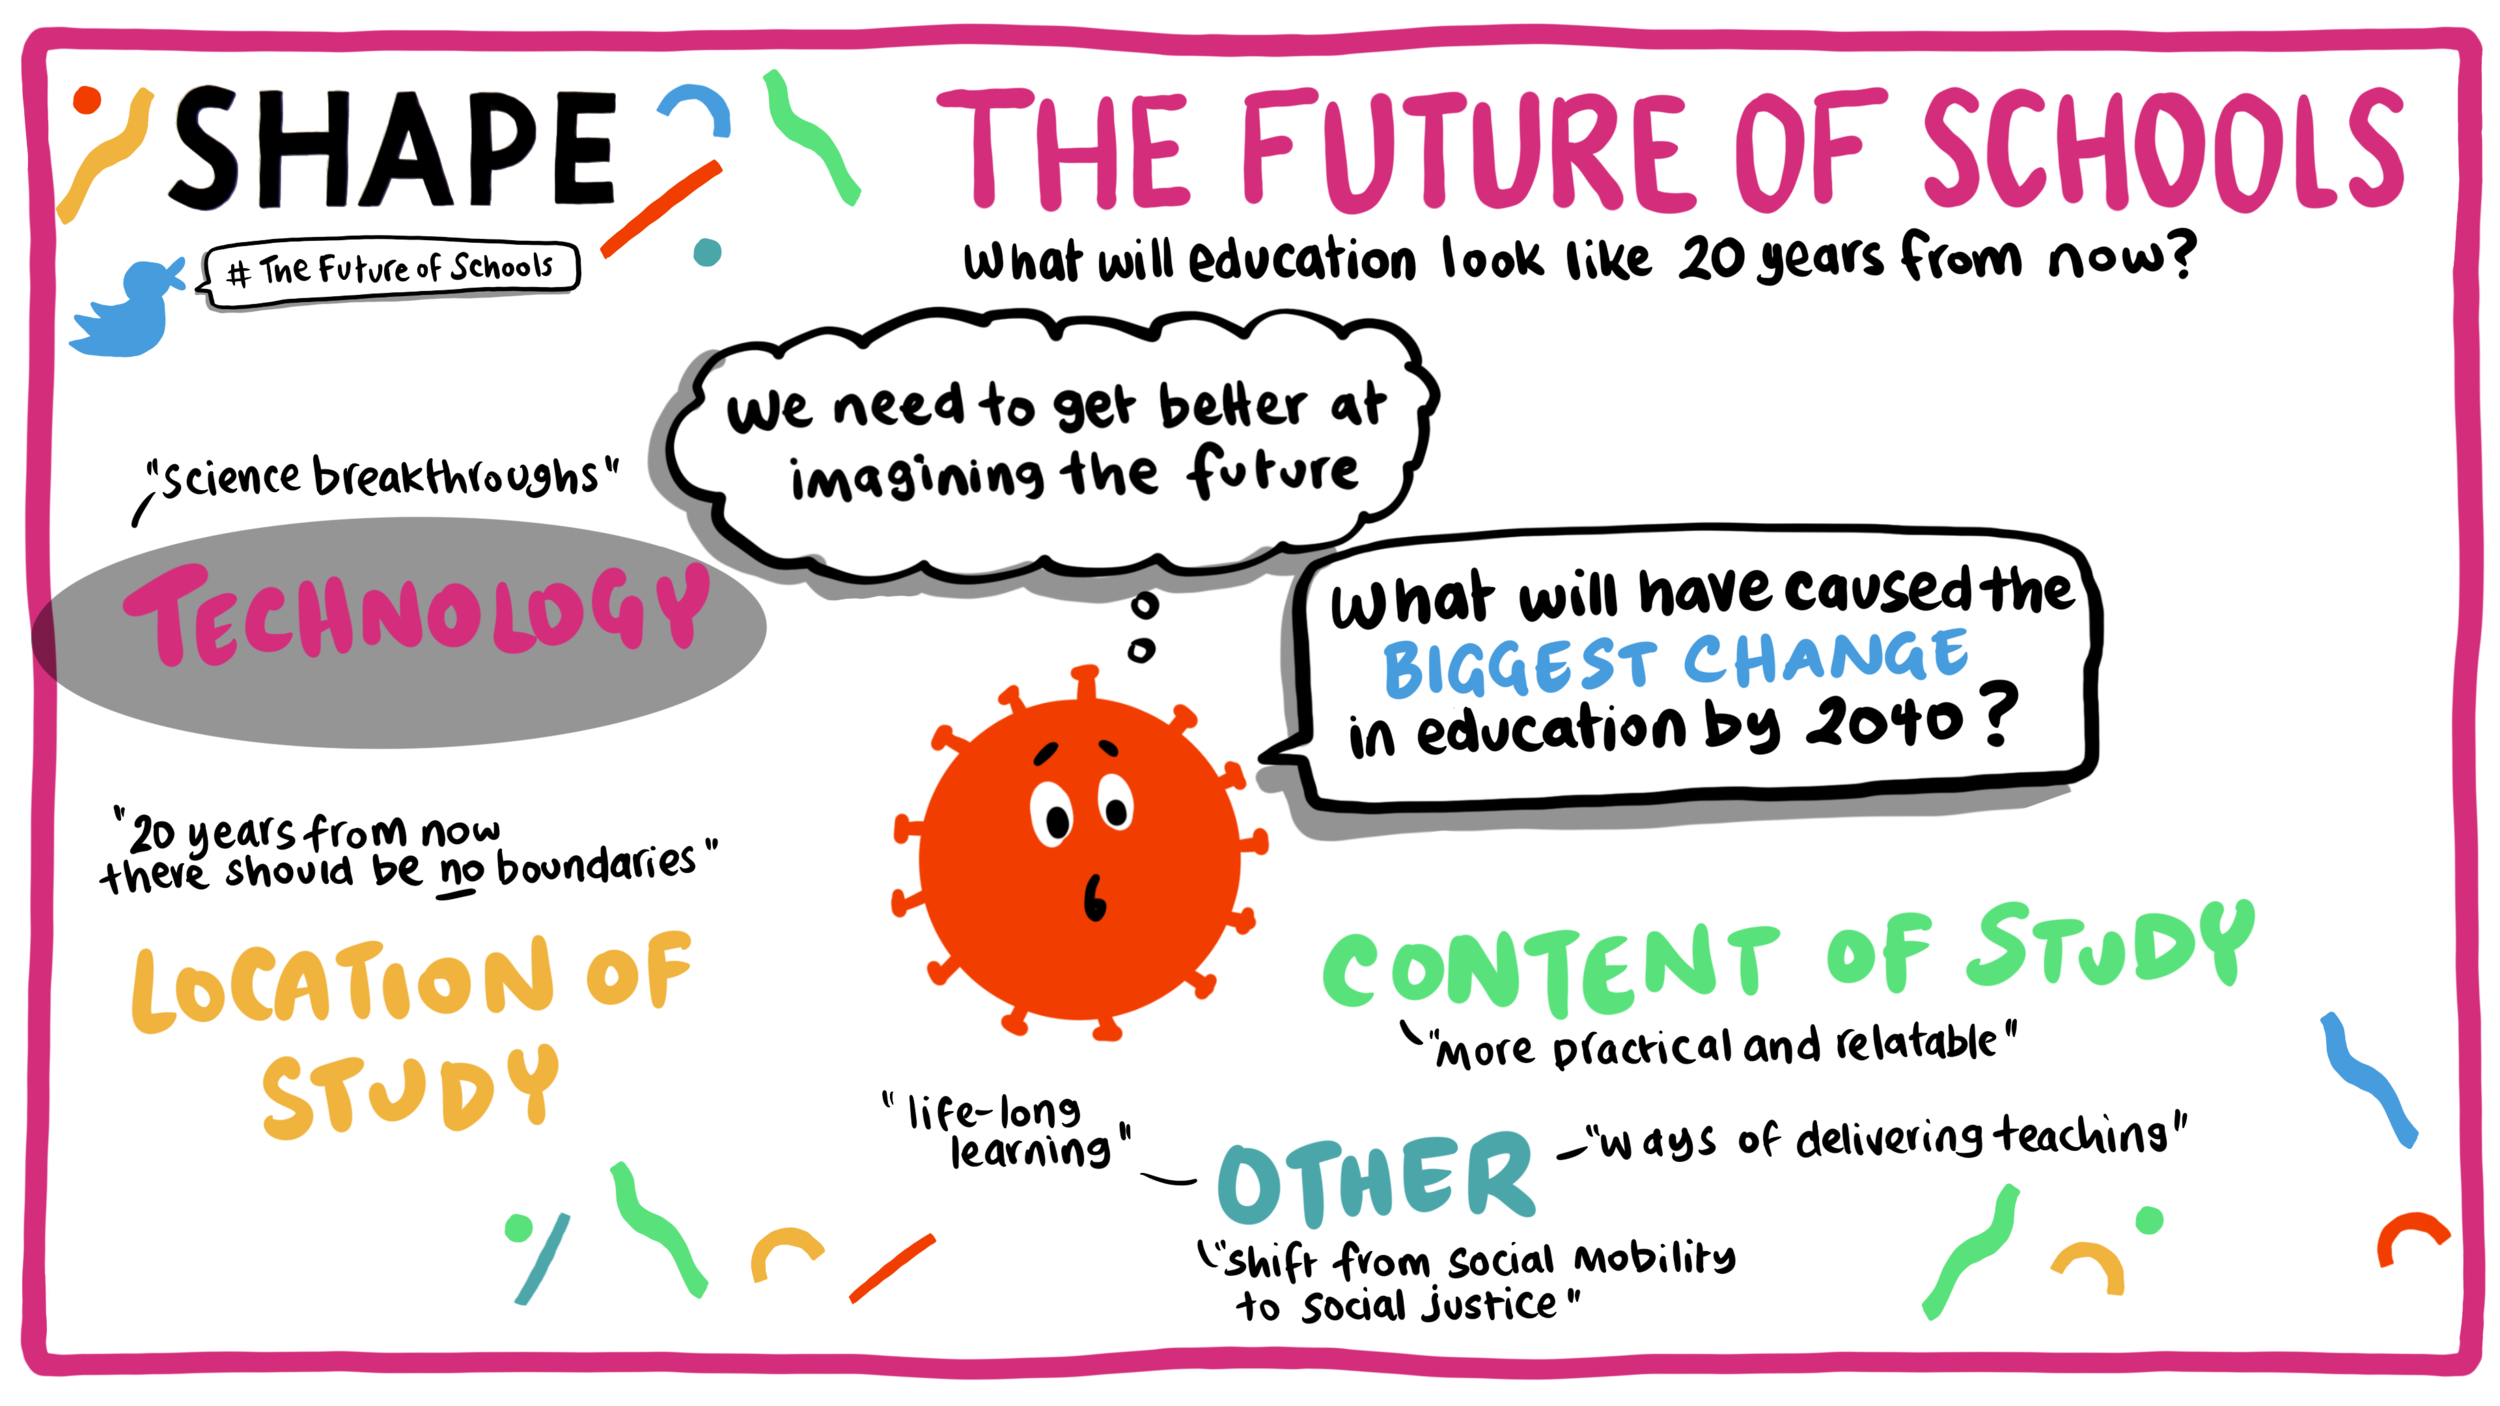 SHAPE
THE FUTURE OF SCHOOLS
What will education look like 20 years from now?
# The Future of Schools
We need to get better at
imagining the future
"science breakthroughs"
TECHNOLOGY
What will have caused the
BIGGEST CHANGE
in education by 2040?
"20 years from now
there should be no boundaries"
LOCATION OF
STUDY
CONTENT OF STUDY
"more practical and relatable"
"life-long
learning"
OTHER
"ways of delivering teaching"
"shift from social mobility
to social justice"